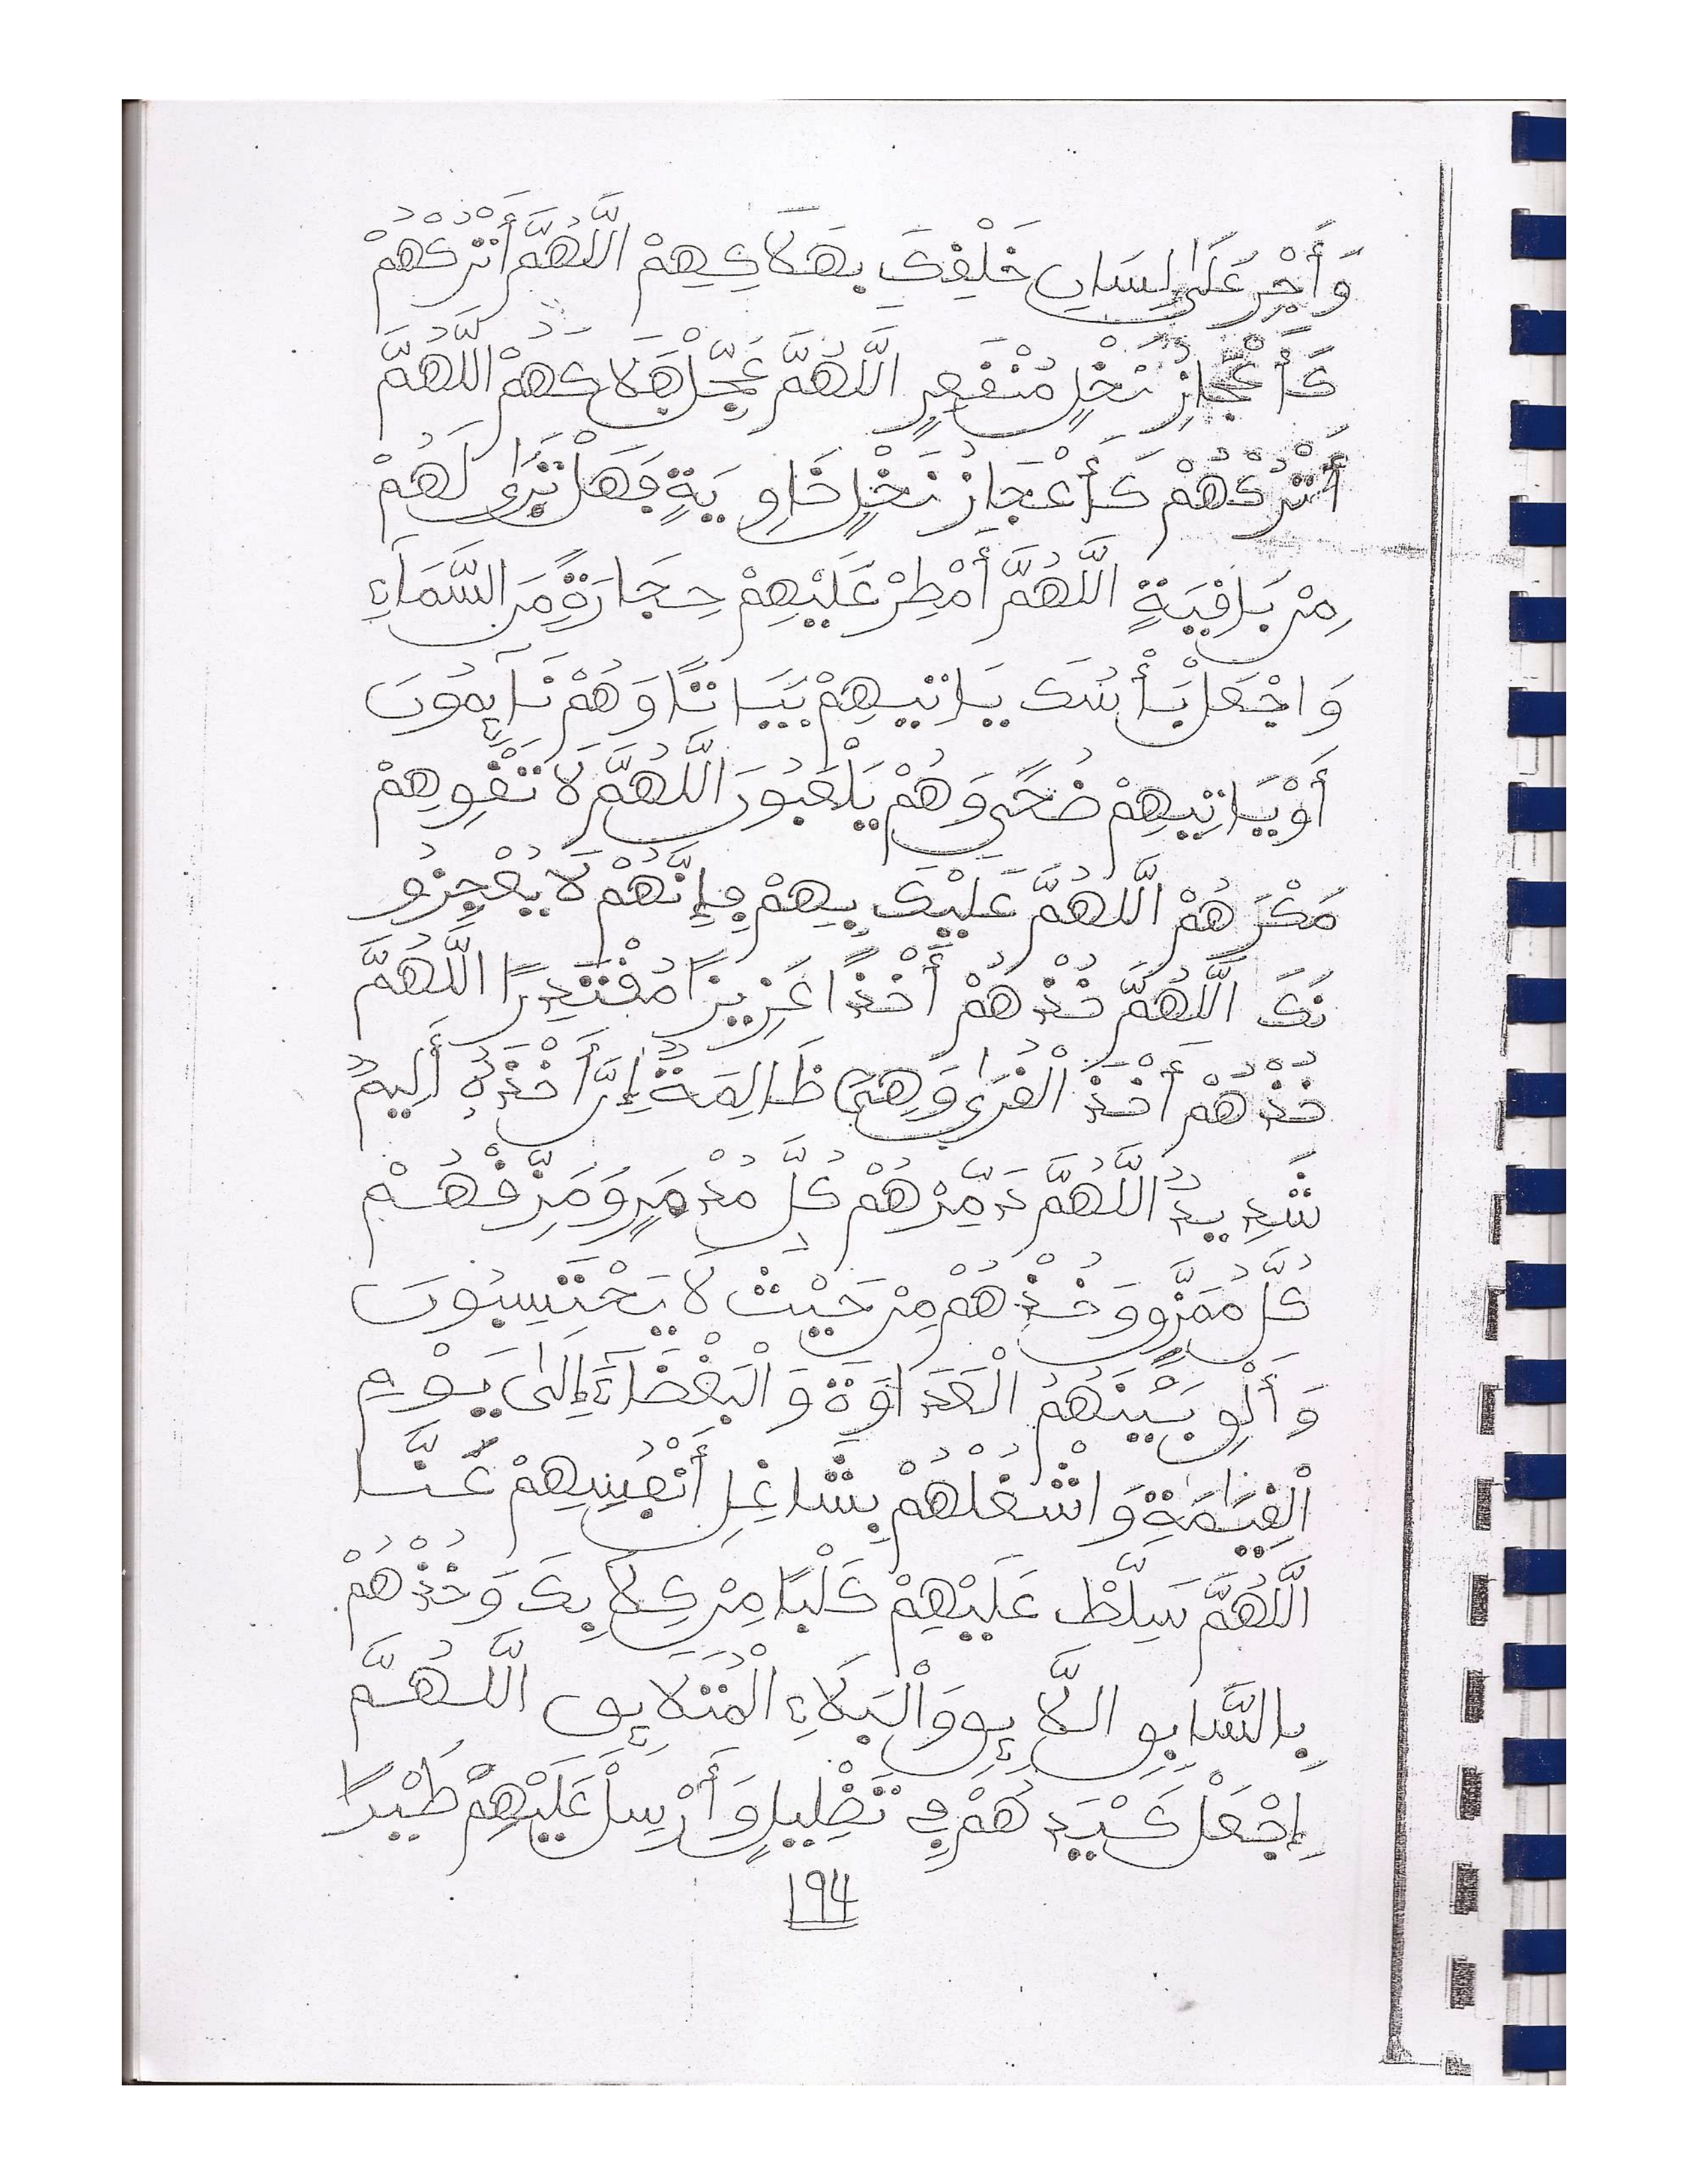 وَأَجْرِ عَلَىٰ لِسَانِ خَلْقِكَ بِهَلَاكِهِمْ اللَّهُمَّ أَتْرُكْهُمْ
كَأَعْجَازِ نَخْلٍ مُنْقَعِرٍ اللَّهُمَّ عَجِّلْ هَلَاكَهُمْ اللَّهُمَّ
أَتْرُكْهُمْ كَأَعْجَازُ نَخْلٍ خَاوِيَةٍ فَهَلْ تَرَىٰ لَهُمْ
مِنْ بَاقِيَةٍ اللَّهُمَّ أَمْطِرْ عَلَيْهِمْ حِجَارَةً مِّنَ السَّمَآءِ
وَاجْعَلْ بَأْسُكَ يَاتِيهِمْ بَيَاتًا وَهُمْ نَآئِمُونَ
أَوْ يَاتِيهِمْ ضُحًى وَهُمْ يَلْعَبُونَ اللَّهُمَّ لَا تَقْوِهِمْ
مَكْرَهُمْ اللَّهُمَّ عَلَيْكَ بِهِمْ فَإِنَّهُمْ لَا يُعْجِزُو
نَكَ اللَّهُمَّ خُذْهُمْ أَخْذًا عَزِيزًا مُقْتَدِرًا اللَّهُمَّ
خُذْهُمْ أَخْذَ الْقُرَىٰ وَهِيَ ظَالِمَةٌ إِنَّ أَخْذَهُ أَلِيمٌ
شَدِيدٌ اللَّهُمَّ دَمِّرْهُمْ كُلَّ مُدْمَرٍ وَمَزِّقْهُمْ
كُلَّ مُمَزَّقٍ وَخُذْهُمْ مِنْ حَيْثُ لَا يَحْتَسِبُونَ
وَأَلْقِ بَيْنَهُمُ الْعَدَاوَةَ وَالْبَغْضَآءَ إِلَىٰ يَوْمِ
الْقِيَٰمَةِ وَاشْغُلْهُمْ بِشَاغِلِ أَنْفُسِهِمْ عَنَّا
اللَّهُمَّ سَلِّطْ عَلَيْهِمْ كَلْبًا مِنْ كِلَابِكَ وَخُذْهُمْ
بِالسَّابِقِ اللَّائِقِ وَالْبَلَاءِ الْمُتَلَائِقِ اللَّهُمَّ
إِجْعَلْ كَيْدَهُمْ فِي تَضْلِيلٍ وَأَرْسِلْ عَلَيْهِمْ طَيْرًا
194